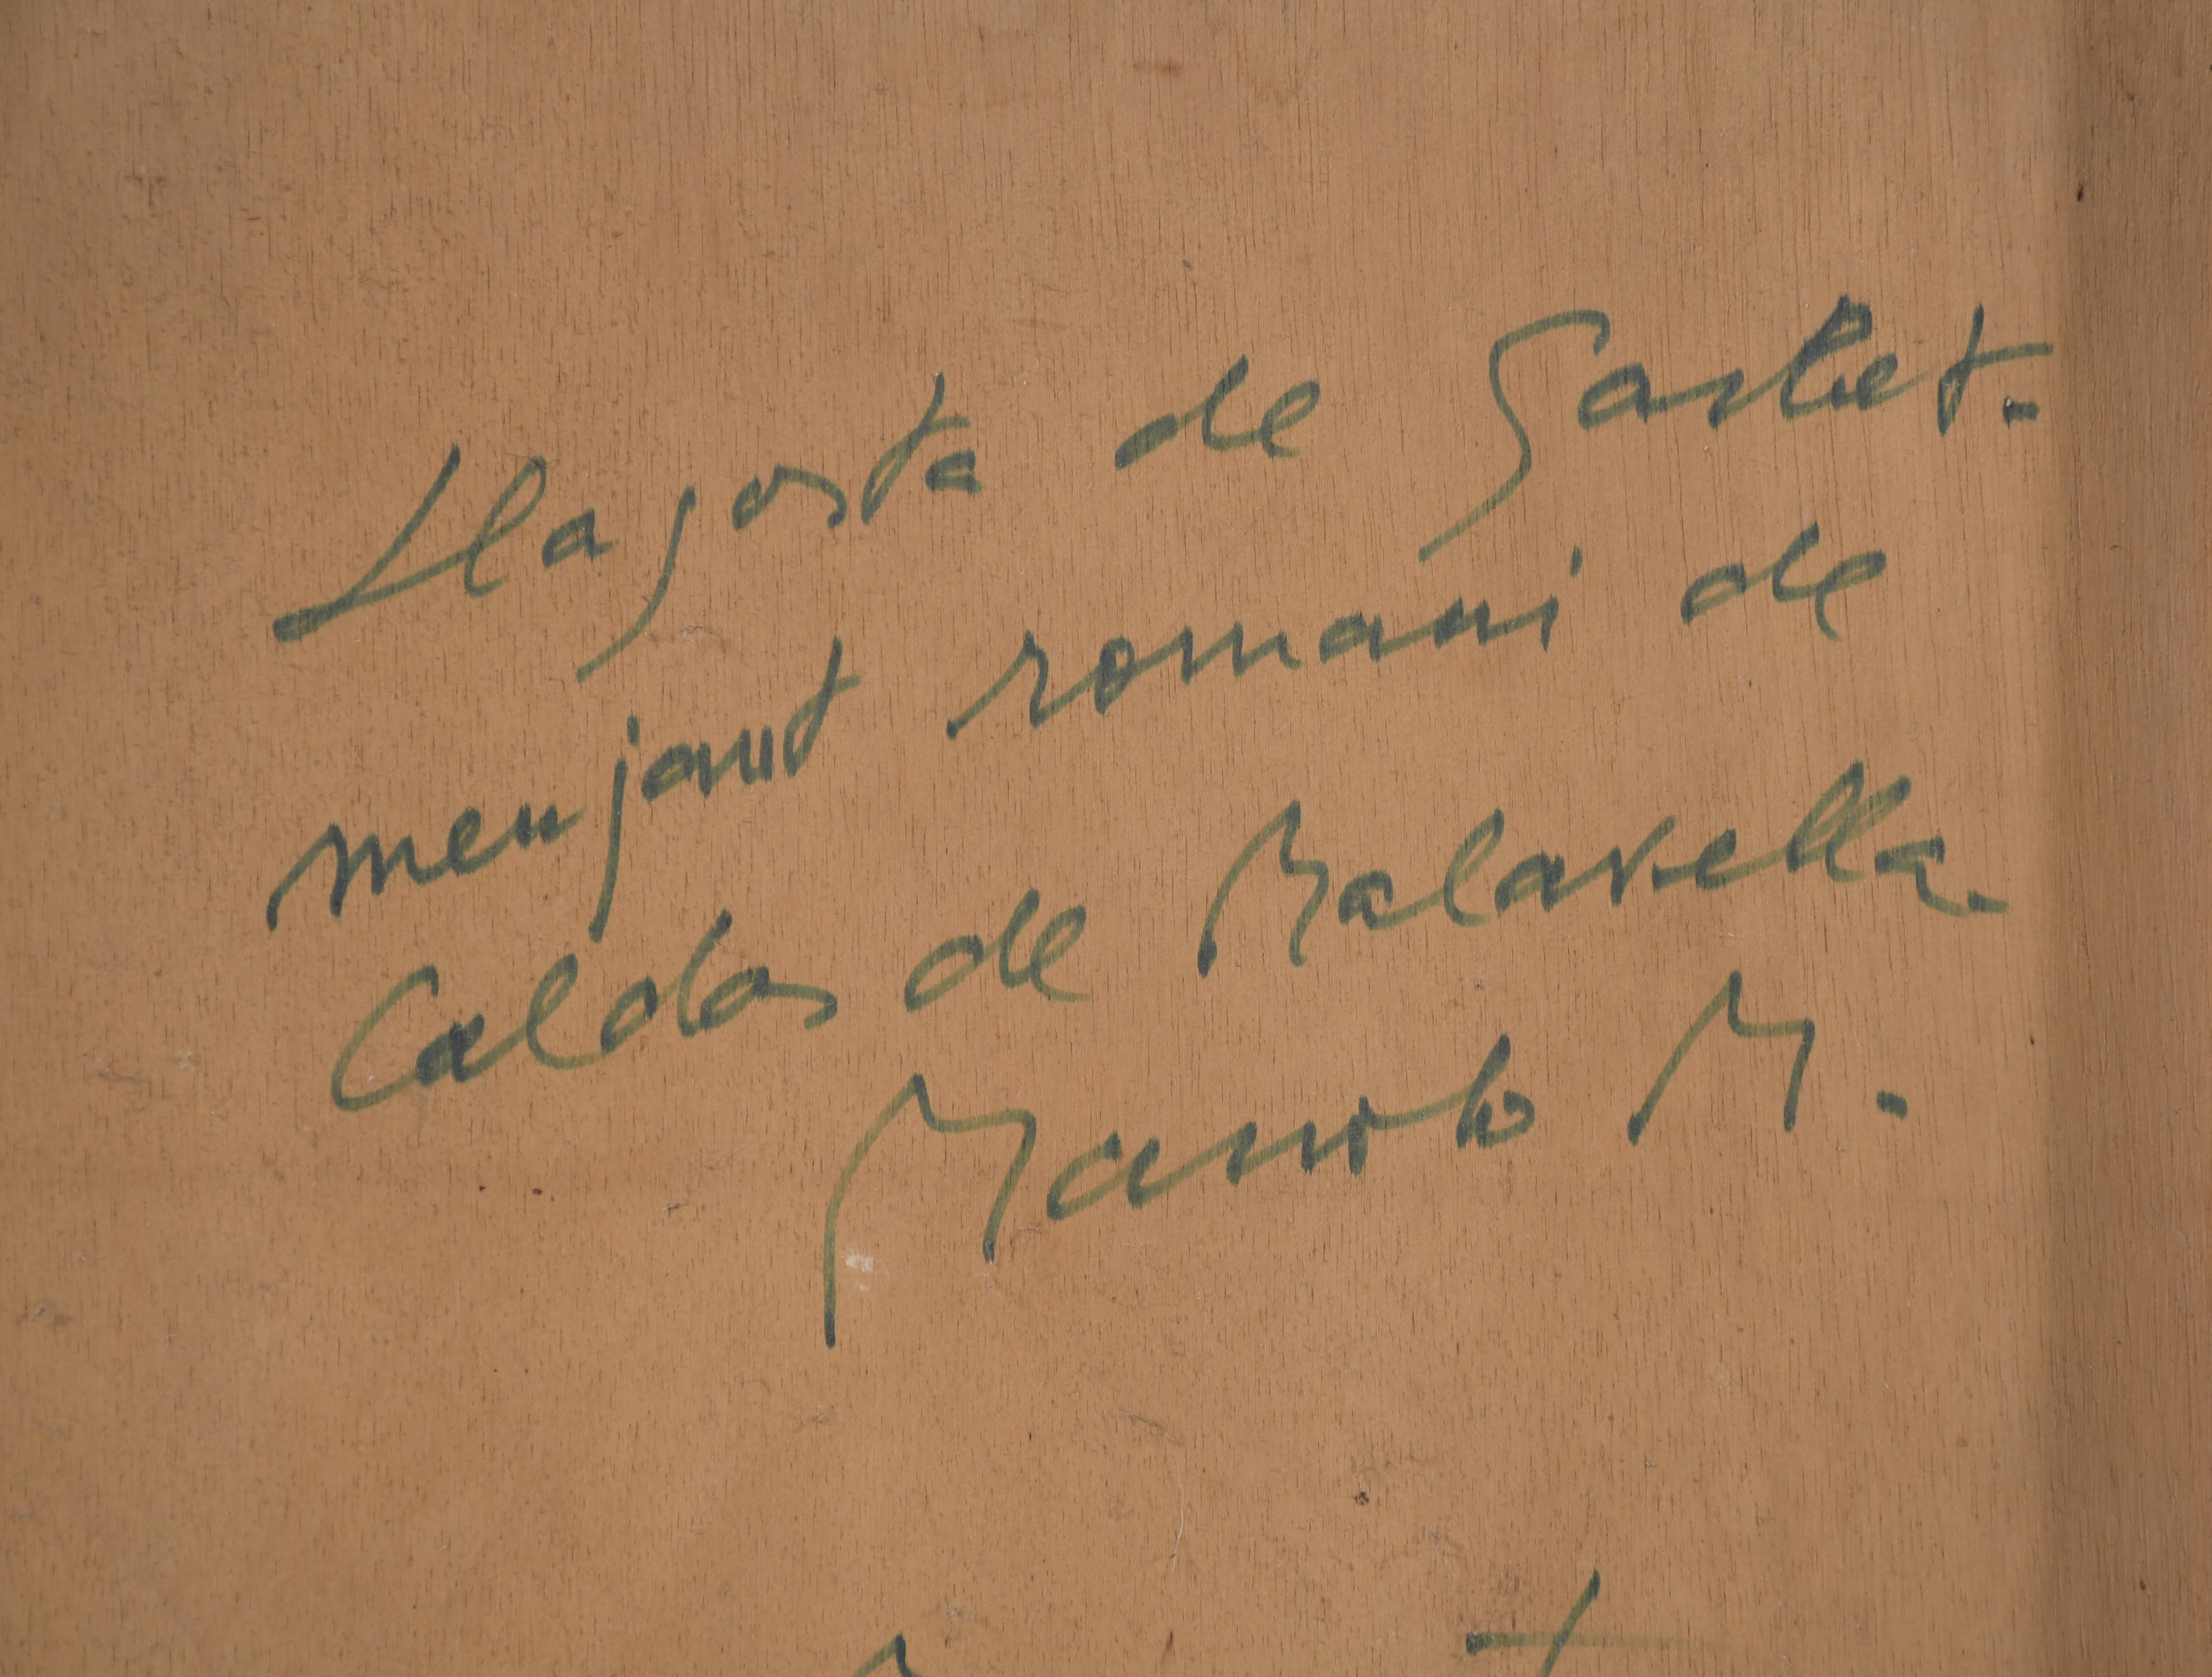 Llagosta de Garbet.
menjant romaní de
Caldas de Malavella.
Manolo M.